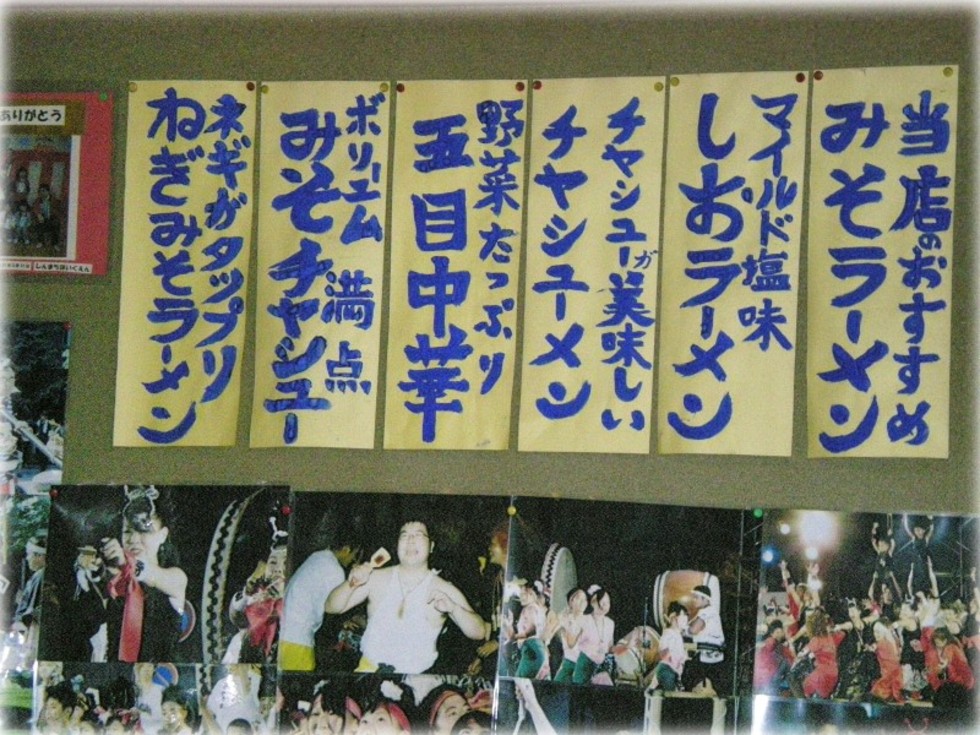 当店のおすすめ
みそラーメン
マイルド塩味
しおラーメン
チヤシューが美味しい
チヤシューメン
野菜たっぷり
五目中華
ボリューム満点
みそチャシュー
ネギがタップリ
ねぎみそラーメン
ありがとう
しんまちほいくえん